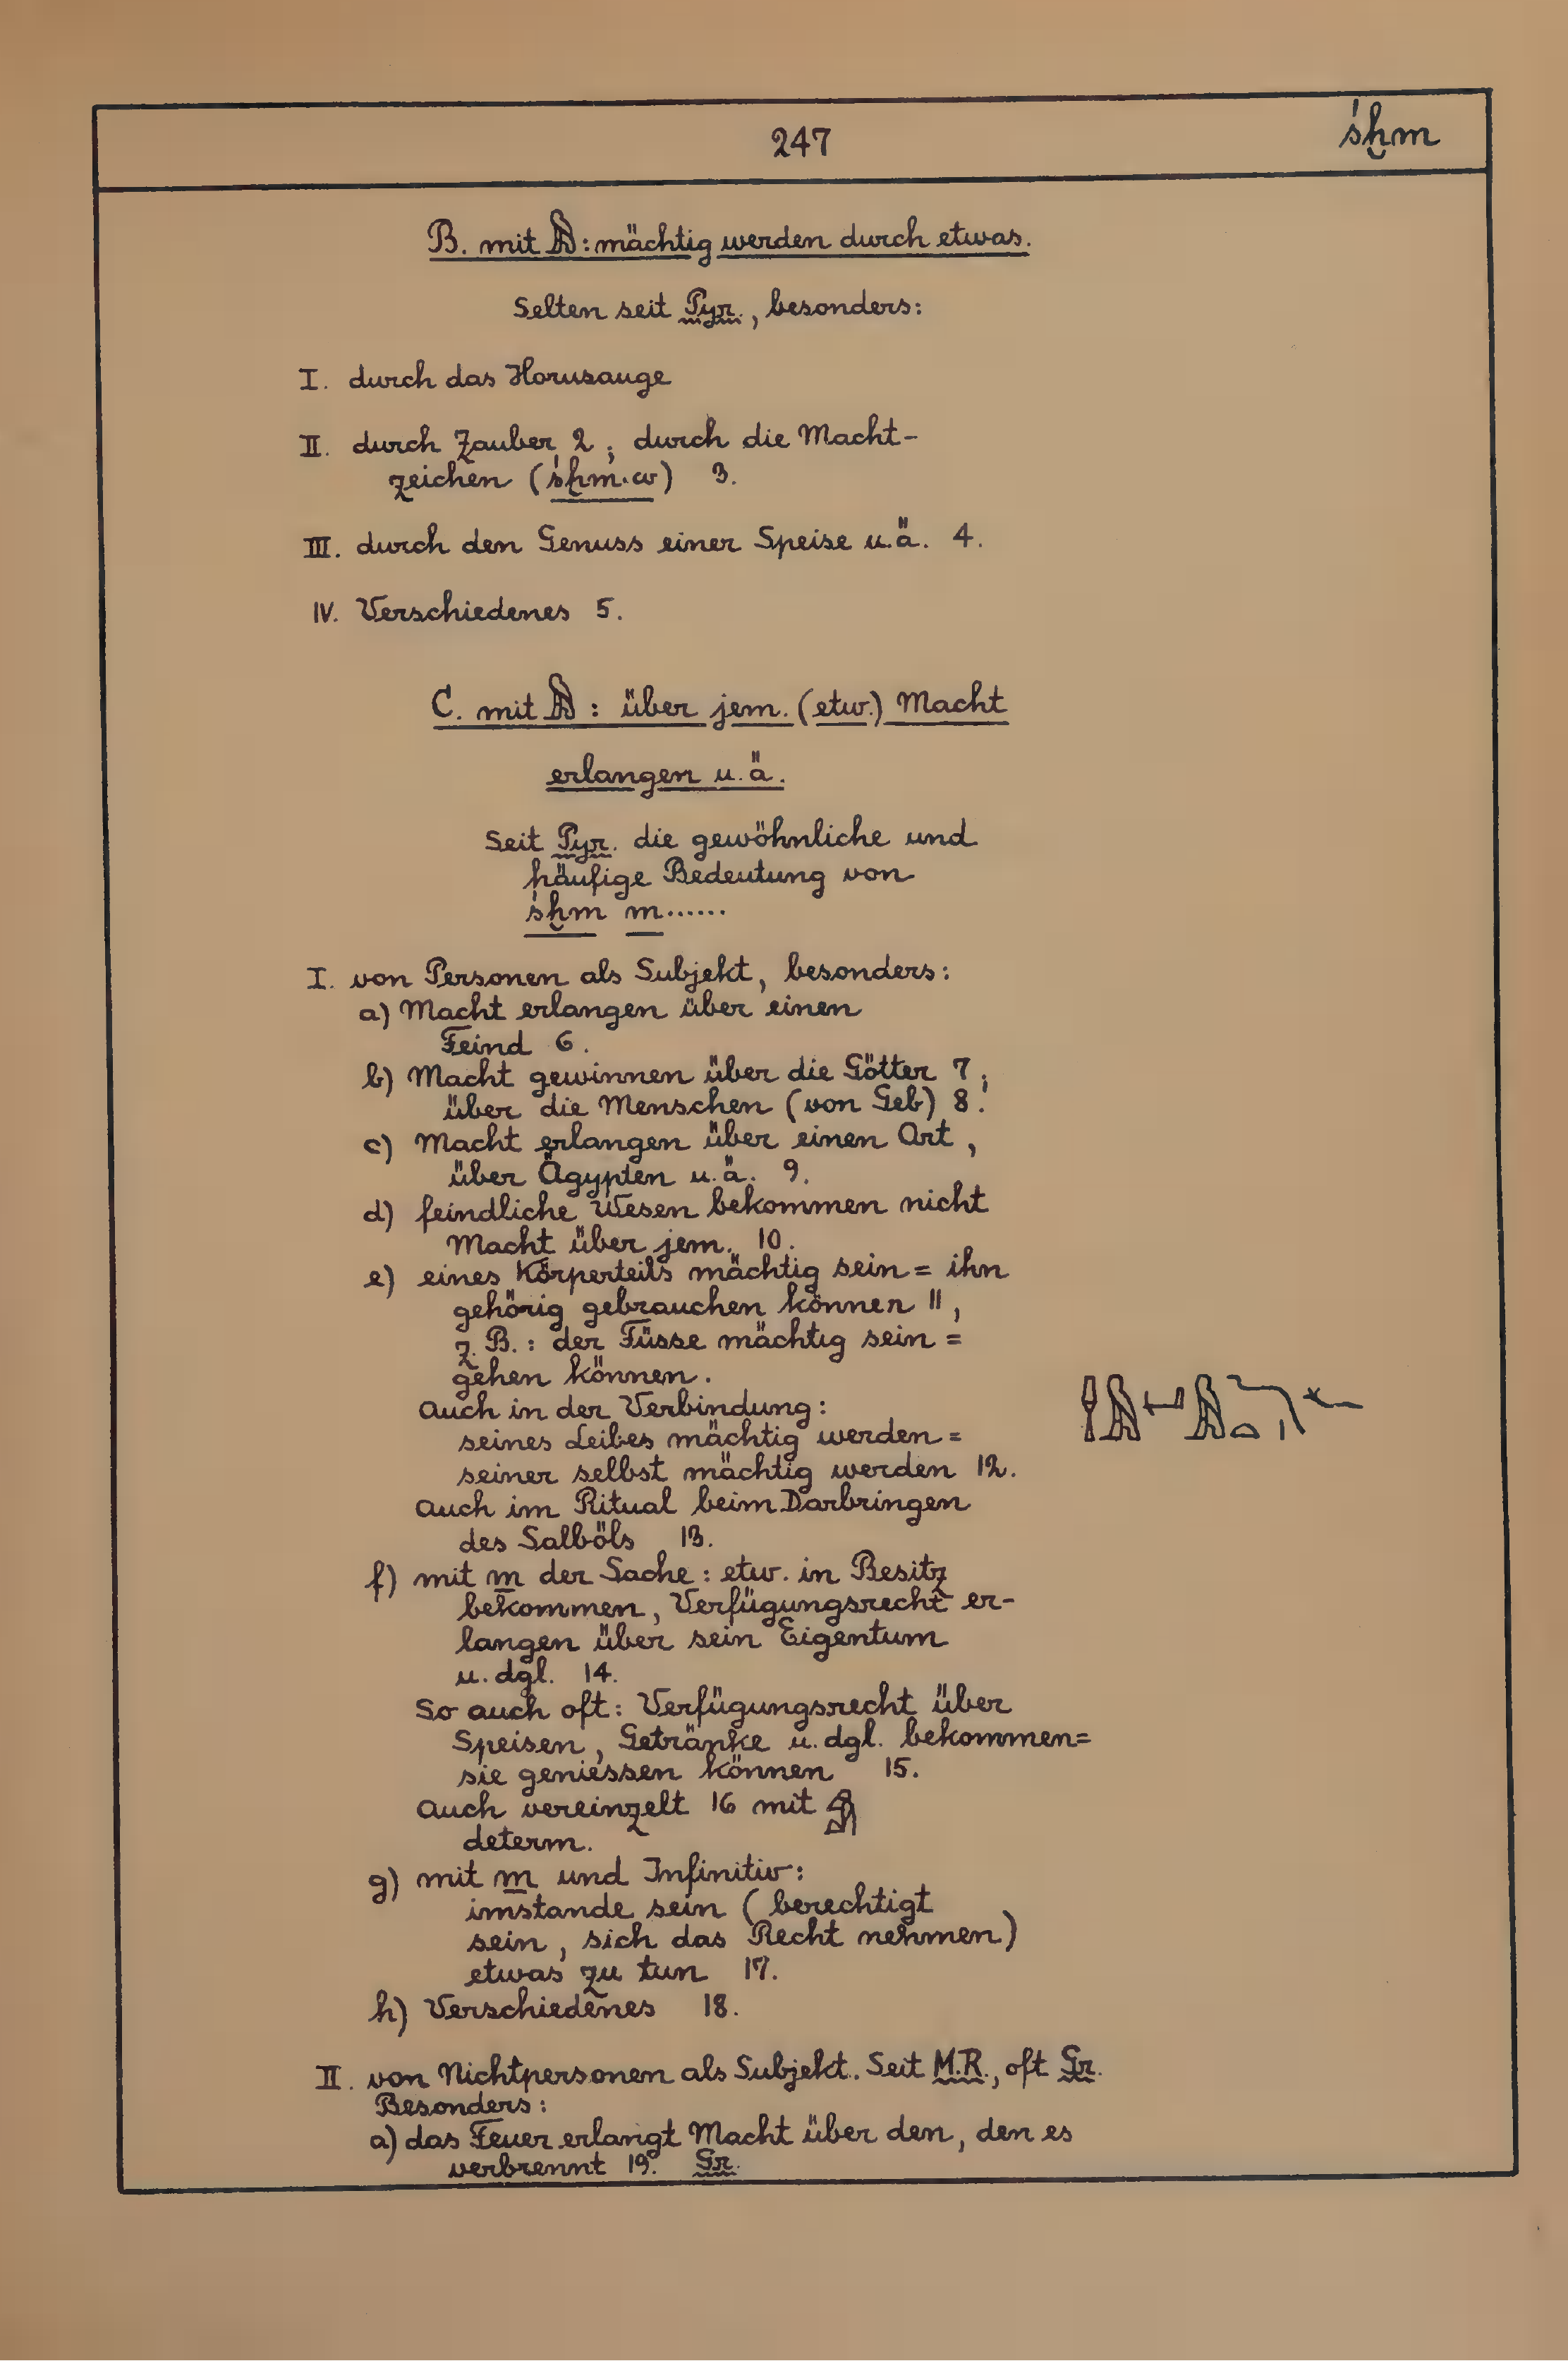 247
śḫm
B. mit 𓅓: mächtig werden durch etwas.
Selten seit Pyr., besonders:
I. durch das Horusauge
II. durch Zauber 2; durch die Macht-
zeichen (śḫm.w) 3.
III. durch den Genuss einer Speise u.ä. 4.
IV. Verschiedenes 5.
C. mit 𓅓: über jem. (etw.) Macht
erlangen u.ä.
Seit Pyr. die gewöhnliche und
häufige Bedeutung von
śḫm m......
I. von Personen als Subjekt, besonders:
a) Macht erlangen über einen
Feind 6.
b) Macht gewinnen über die Götter 7;
über die Menschen (von Geb) 8.
c) Macht erlangen über einen Ort,
über Ägypten u.ä. 9.
d) feindliche Wesen bekommen nicht
Macht über jem. 10.
e) eines Körperteils mächtig sein = ihn
gehörig gebrauchen können 11,
z.B.: der Füsse mächtig sein =
gehen können.
Auch in der Verbindung:
seines Leibes mächtig werden =
seiner selbst mächtig werden 12.
Auch im Ritual beim Darbringen
des Salböls 13.
f) mit m der Sache: etw. in Besitz
bekommen, Verfügungsrecht er-
langen über sein Eigentum
u. dgl. 14.
So auch oft: Verfügungsrecht über
Speisen, Getränke u. dgl. bekommen =
sie geniessen können 15.
Auch vereinzelt 16 mit 𓀁
determ.
g) mit m und Infinitiv:
imstande sein (berechtigt
sein, sich das Recht nehmen)
etwas zu tun 17.
h) Verschiedenes 18.
II. von Nichtpersonen als Subjekt. Seit M.R., oft Gr.
Besonders:
a) das Feuer erlangt Macht über den, den es
verbrennt 19. Gr.